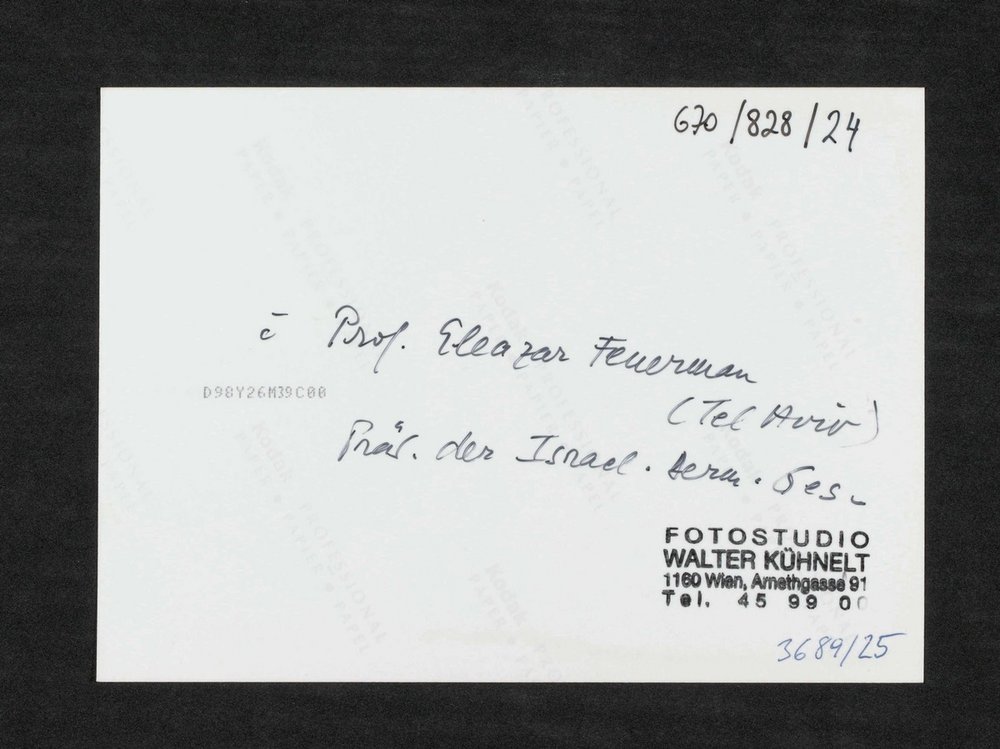 670/828/24
c̄ Prof. Eleazar Feuerman
(Tel Aviv)
D98Y26M39C00
Präs. der Israel. Derm. Ges.
FOTOSTUDIO
WALTER KÜHNELT
1160 Wien, Arnethgasse 91
Tel. 45 99 00
3689/25
Kodak PROFESSIONAL PAPER ♦ PAPIER